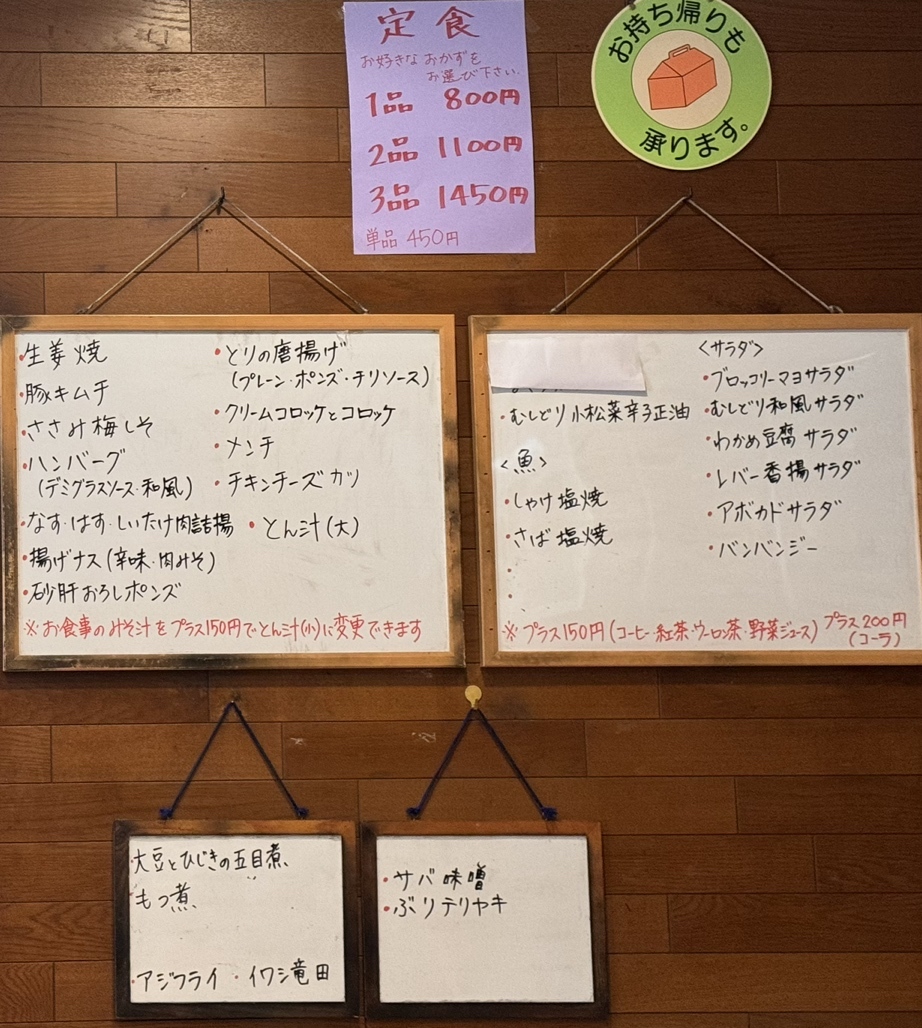 定食
お好きなおかずを
お選び下さい.
1品 800円
2品 1100円
3品 1450円
単品 450円
お持ち帰りも
承ります。
・生姜焼
・豚キムチ
・ささみ梅しそ
・ハンバーグ
(デミグラスソース・和風)
・なす・はす・しいたけ肉詰揚
・揚げナス(辛味・肉みそ)
・砂肝おろしポンズ
・とりの唐揚げ
(プレーン・ポンズ・チリソース)
・クリームコロッケとコロッケ
・メンチ
・チキンチーズカツ
・とん汁(大)
※お食事のみそ汁をプラス150円でとん汁(小)に変更できます
・むしどり小松菜辛子正油
<魚>
・しゃけ塩焼
・さば塩焼
<サラダ>
・ブロッコリーマヨサラダ
・むしどり和風サラダ
・わかめ豆腐サラダ
・レバー香揚サラダ
・アボカドサラダ
・バンバンジー
※プラス150円(コーヒー・紅茶・ウーロン茶・野菜ジュース) プラス200円
(コーラ)
・大豆とひじきの五目煮、
・もつ煮、
・アジフライ ・イワシ竜田
・サバ味噌
・ぶりテリヤキ